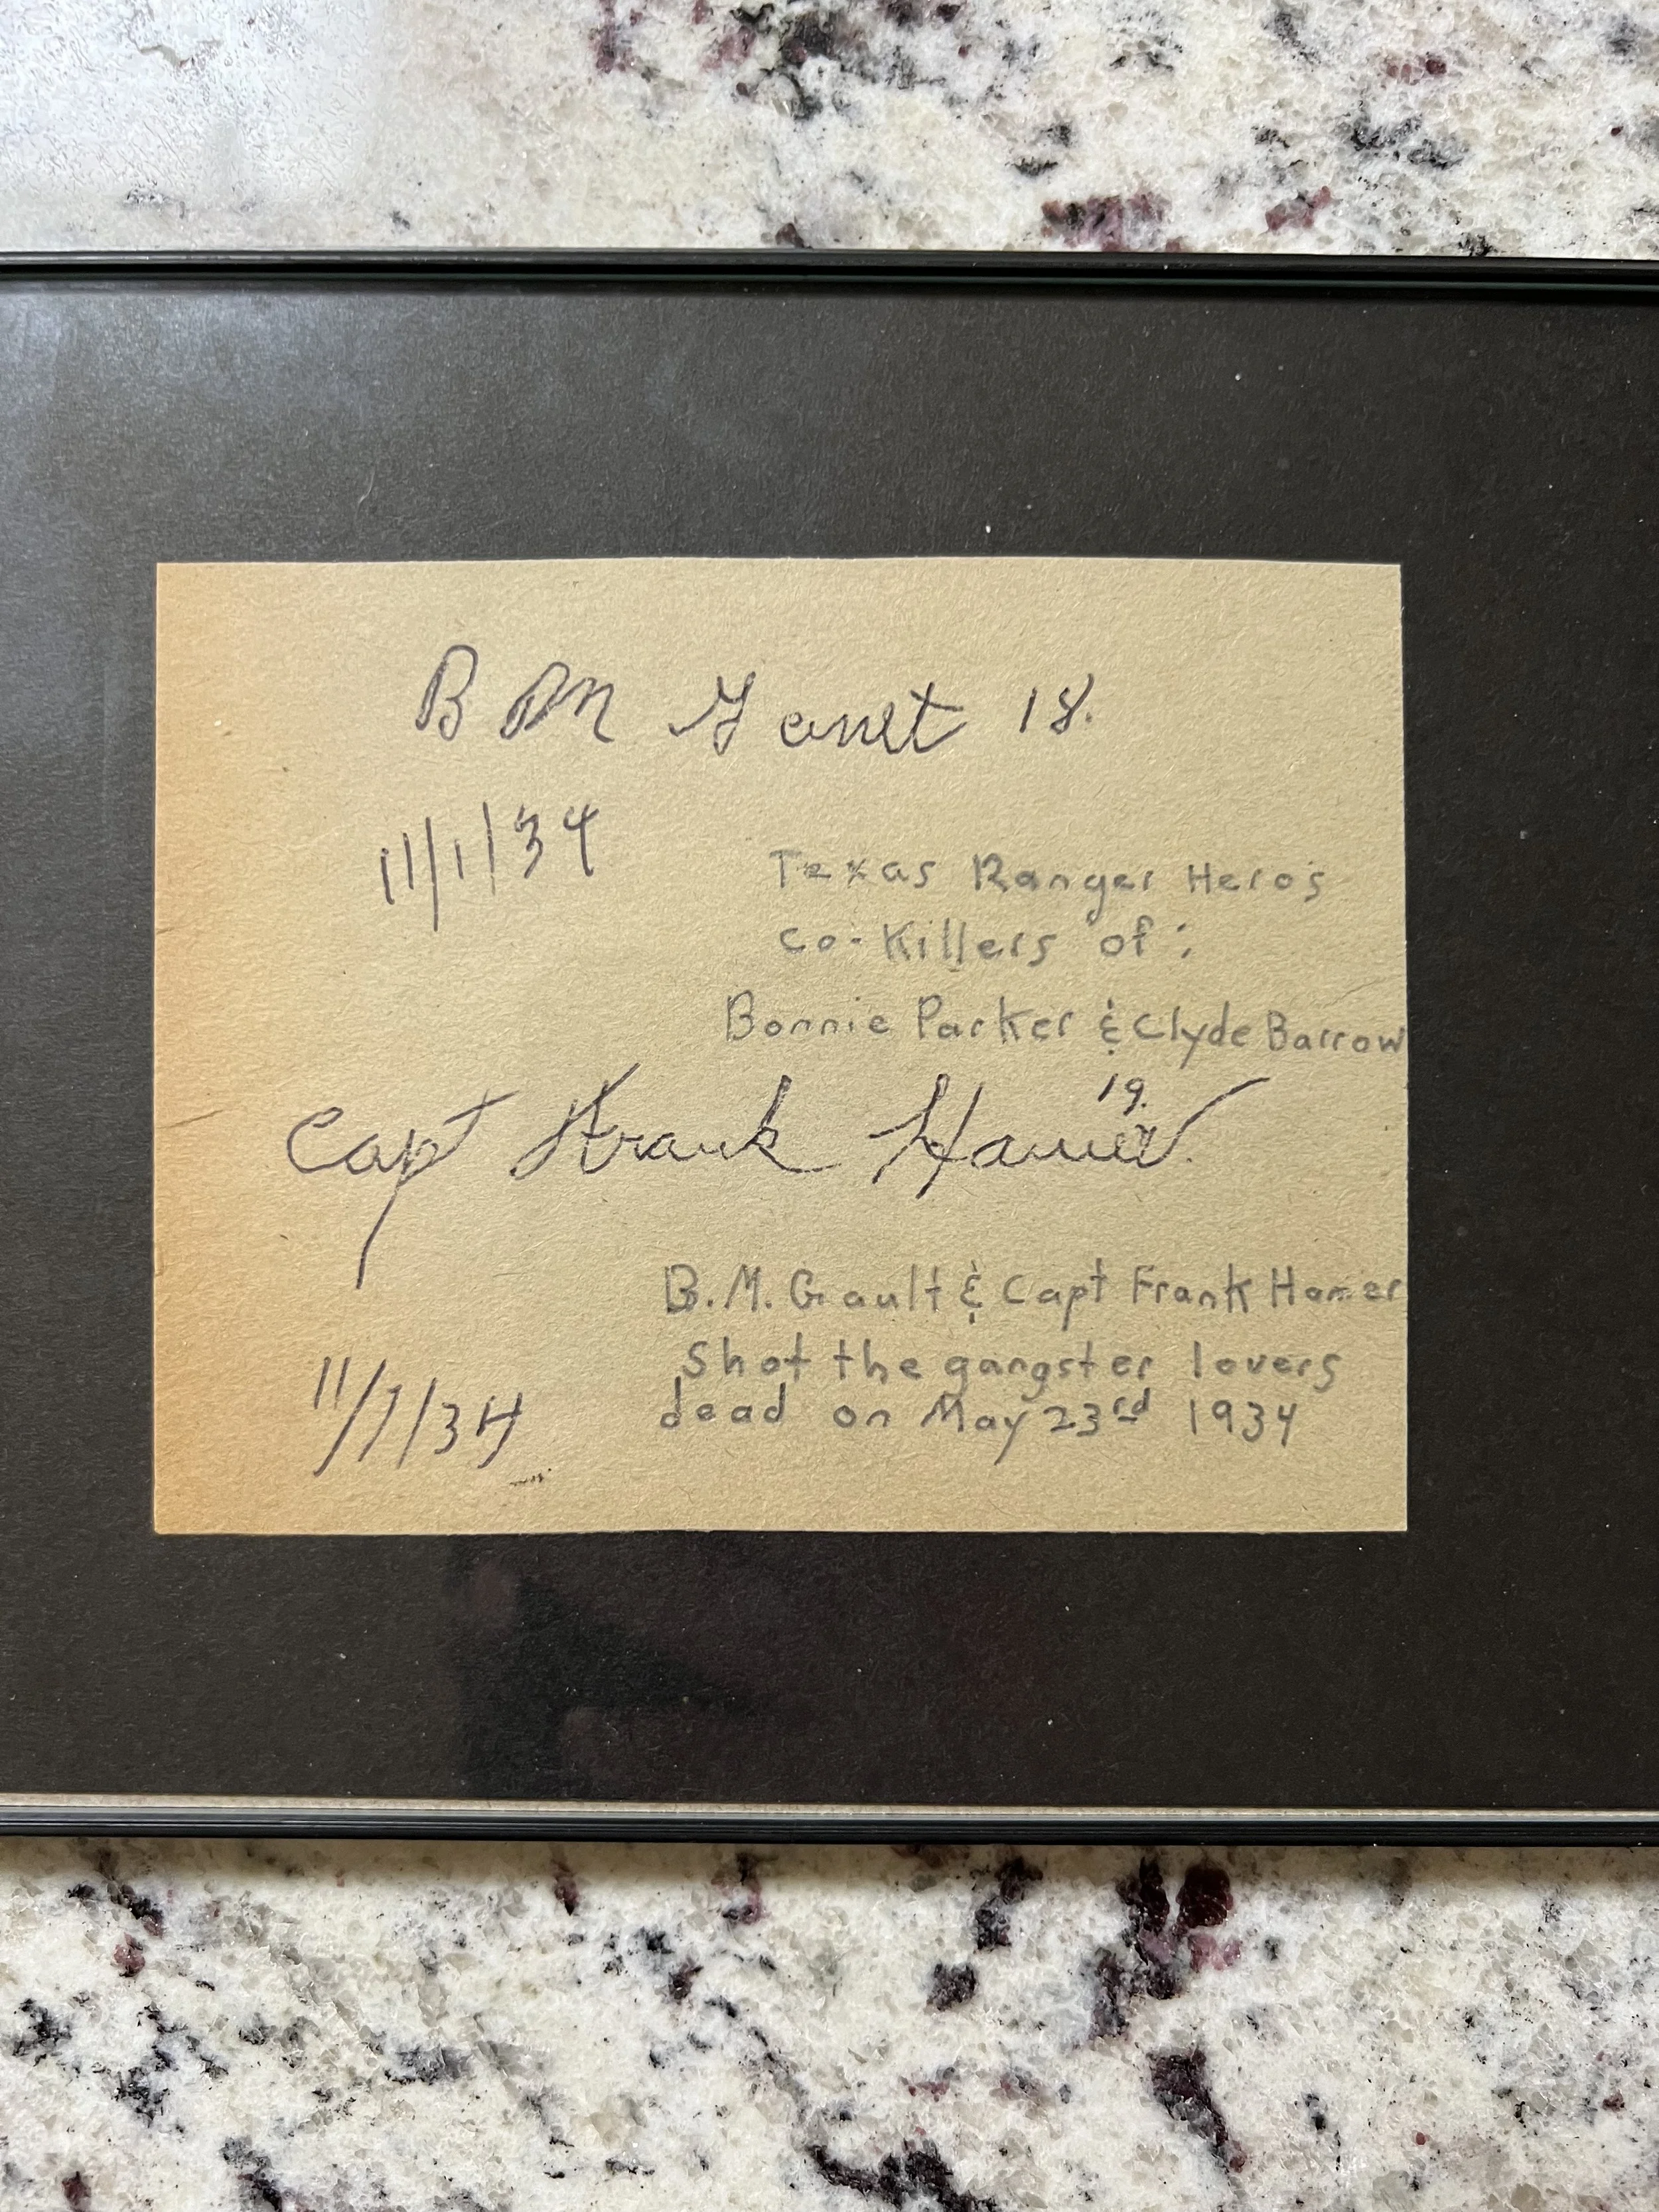 B M Gault 18.
11/1/34
Texas Ranger Heros
Co-Killers of:
Bonnie Parker & Clyde Barrow
19.
Capt Frank Hamer
B.M. Gault & Capt Frank Hamer
Shot the gangster lovers
dead on May 23rd 1934
11/1/34